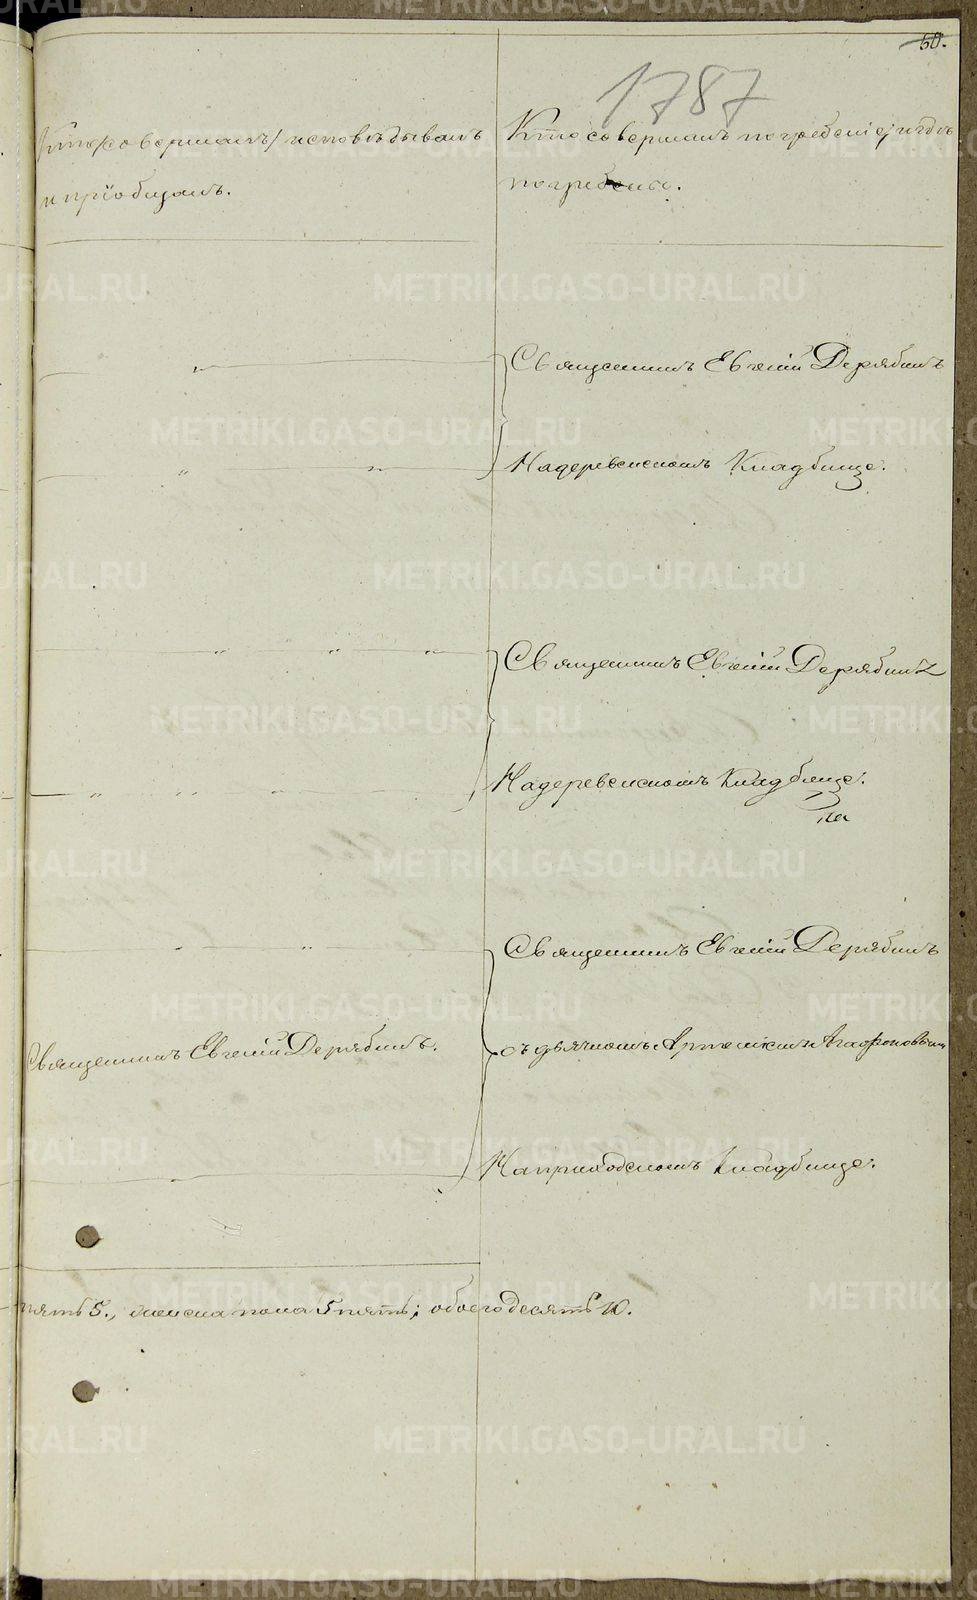 60.
1787
Кто /совершалъ/ исповѣдывалъ
и прiобщалъ.
Кто совершалъ погребенiе, и гдѣ
погребены.
Священникъ Евгенiй Дерябинъ
На деревенскомъ Кладбище.
Священникъ Евгенiй Дерябинъ
На деревенскомъ Кладбище.
Священникъ Евгенiй Дерябинъ
Священникъ Евгенiй Дерябинъ.
съ дьячкомъ Артемiемъ Агафоновымъ
На приходскомъ Кладбище.
пять 5., женска пола 5 пять; обоего десять 10.
METRIKI.GASO-URAL.RU